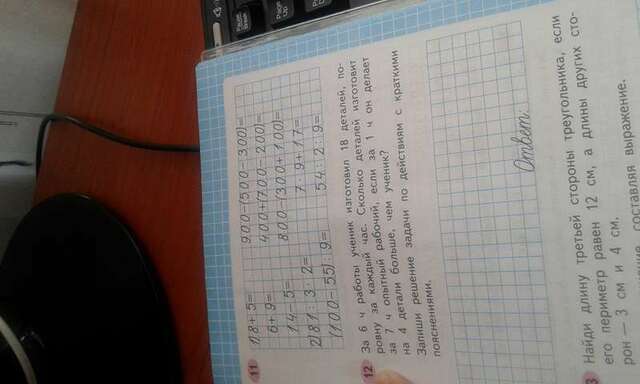 11
1) 8+5= 900-(500-300)=
6+9= 400+(700-200)=
14-5= 800-(300+100)=
2) 81:3·2= 7·9+17=
(100-55):9= 54:2:9=
12 За 6 ч работы ученик изготовил 18 деталей, по-
ровну за каждый час. Сколько деталей изготовит
за 7 ч опытный рабочий, если за 1 ч он делает
на 4 детали больше, чем ученик?
Запиши решение задачи по действиям с краткими
пояснениями.
Ответ:
Найди длину третьей стороны треугольника, если
его периметр равен 12 см, а длины других сто-
рон — 3 см и 4 см.
составляя выражение.
Page
Up
Page